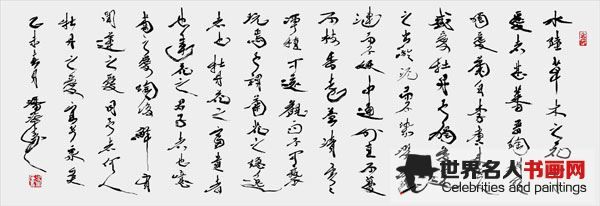 水陸草木之花可
愛者甚蕃晋陶渊明
獨愛菊自李唐来世人
盛愛牡丹予獨愛蓮
之出淤泥而不染濯清
漣而不妖中通外直不蔓
不枝香遠益清亭亭
淨植可遠觀而不可褻
玩焉予謂菊花之隐逸
者也牡丹花之富貴者
也蓮花之君子者也噫
菊之愛陶後鮮有
聞蓮之愛同予者何人
牡丹之愛宜乎眾矣
乙未
世界名人书画网
Celebrities and paintings